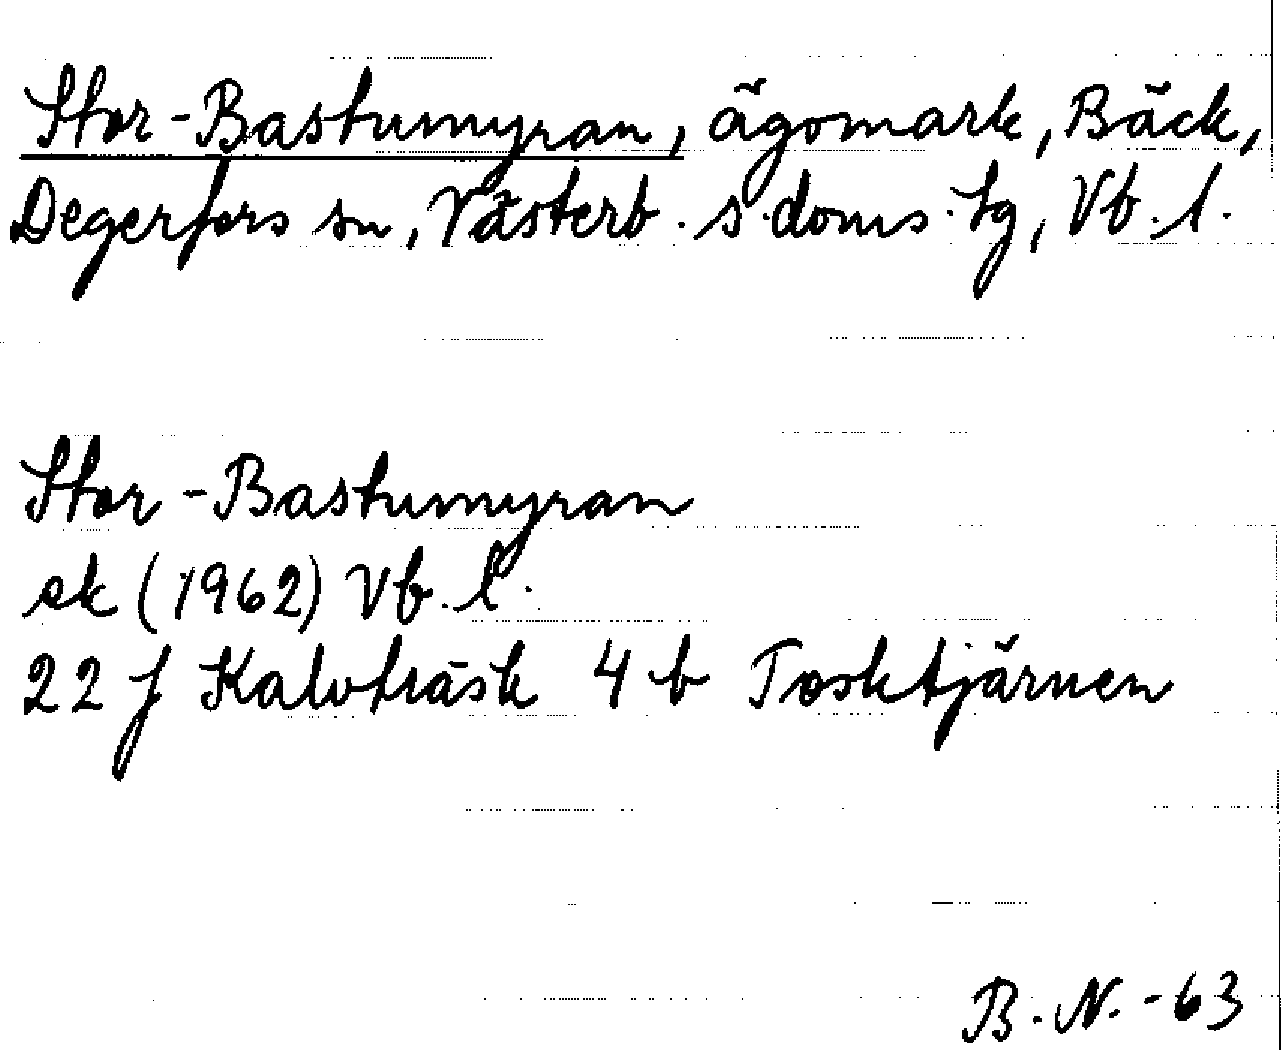 Stor-Bastumyran, ägomark, Bäck,
Degerfors sn, Västerb. s. doms. tg, Vb. l.
Stor-Bastumyran
ek (1962) Vb. l.
22 J Kalvträsk 4 b Tosktjärnen
B. N. -63